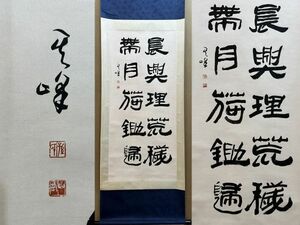 其峰
晨興理荒穢
帶月荷鋤歸
其峰
晨興理荒穢
帶月荷鋤歸
其峰